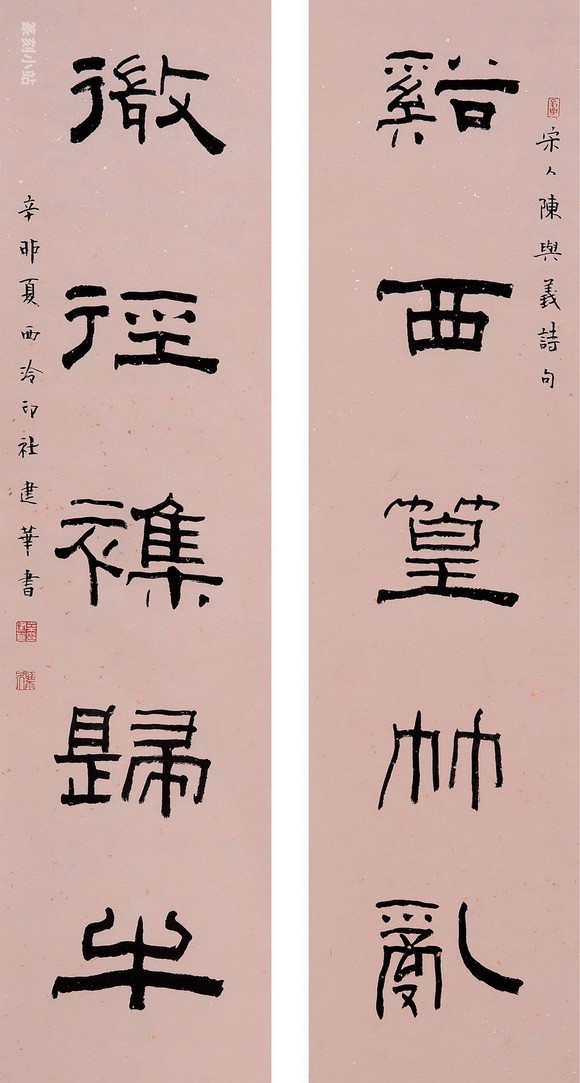 宋人陳與義詩句
谿西篁竹亂
微徑襍歸牛
辛卯夏西泠印社建華書
篆刻小站